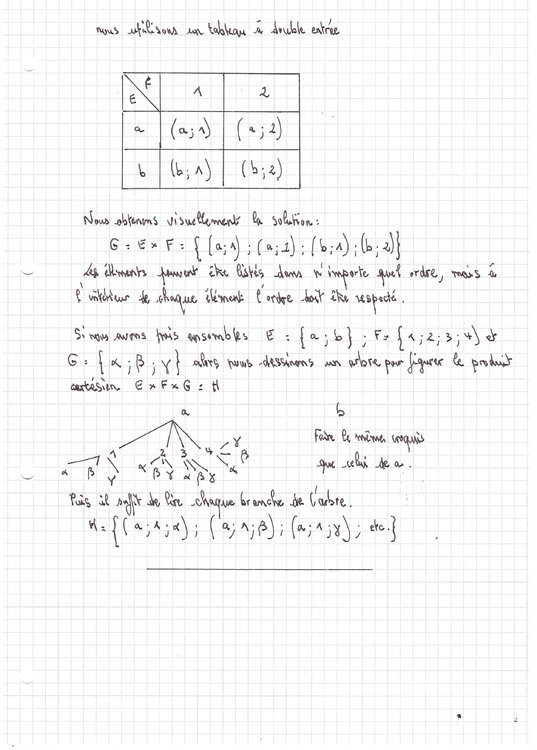 nous utilisons un tableau à double entrée
E F 1 2
a (a;1) (a;2)
b (b;1) (b;2)
Nous obtenons visuellement la solution:
G = E × F = { (a;1) ; (a;2) ; (b;1) ; (b;2)}
Les éléments peuvent être listés dans n'importe quel ordre, mais à
l'intérieur de chaque élément l'ordre doit être respecté.
Si nous avons trois ensembles E = {a ; b} ; F = {1 ; 2 ; 3 ; 4) et
G = {α ; β ; γ} alors nous dessinons un arbre pour figurer le produit
cartésien E × F × G = H
a
b
1 2 3 4
α β γ α β γ α β γ γ β α
Faire le même croquis
que celui de a.
Puis il suffit de lire chaque branche de l'arbre.
H = {(a ; 1 ; α) ; (a ; 1 ; β) ; (a ; 1 ; γ) ; etc.}